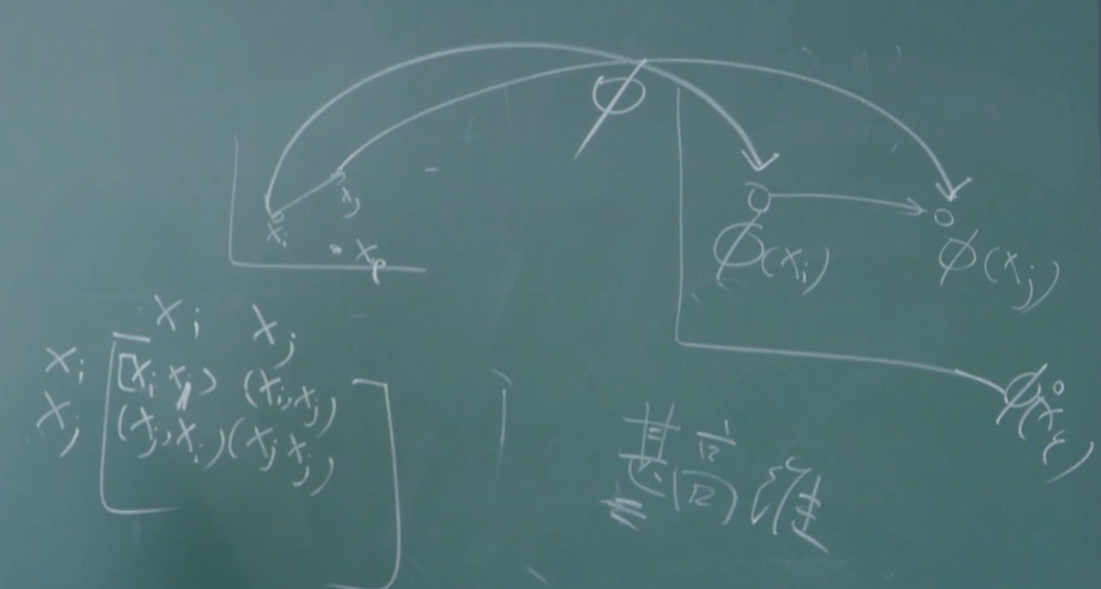 ϕ
x_j
x_i
x_p
ϕ(x_i)
ϕ(x_j)
x_i x_j
x_i (x_i x_i) (x_i, x_j)
x_j (x_j, x_i) (x_j x_j)
高维